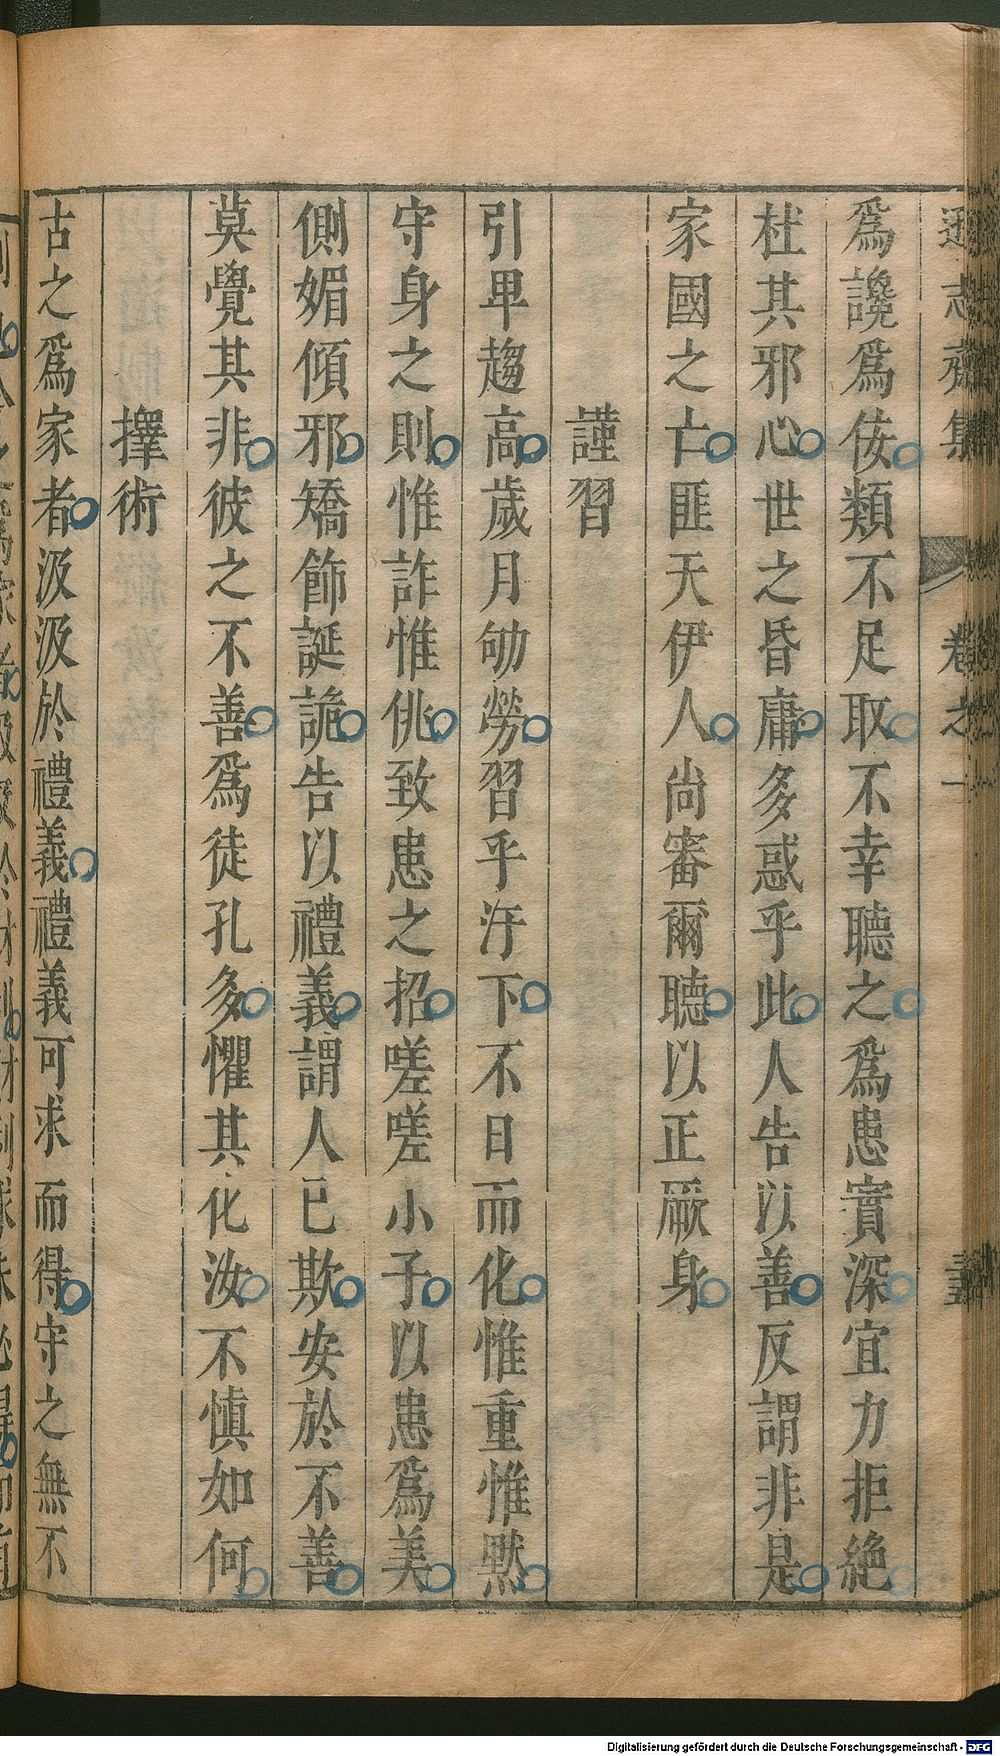 遜志齋集 卷之一
爲讒爲佞類不足取不幸聽之爲患實深宜力拒絶
杜其邪心世之昏庸多惑乎此人告以善反謂非是
家國之亡匪天伊人尚審爾聽以正厥身
謹習
引卑趨高歲月劬勞習乎汙下不日而化惟重惟默
守身之則惟詐惟佻致患之招嗟嗟小子以患爲美
側媚傾邪矯飾誕詭告以禮義謂人已欺安於不善
莫覺其非彼之不善爲徒孔多懼其化汝不慎如何
擇術
古之爲家者汲汲於禮義禮義可求而得守之無不
Digitalisierung gefördert durch die Deutsche Forschungsgemeinschaft - DFG